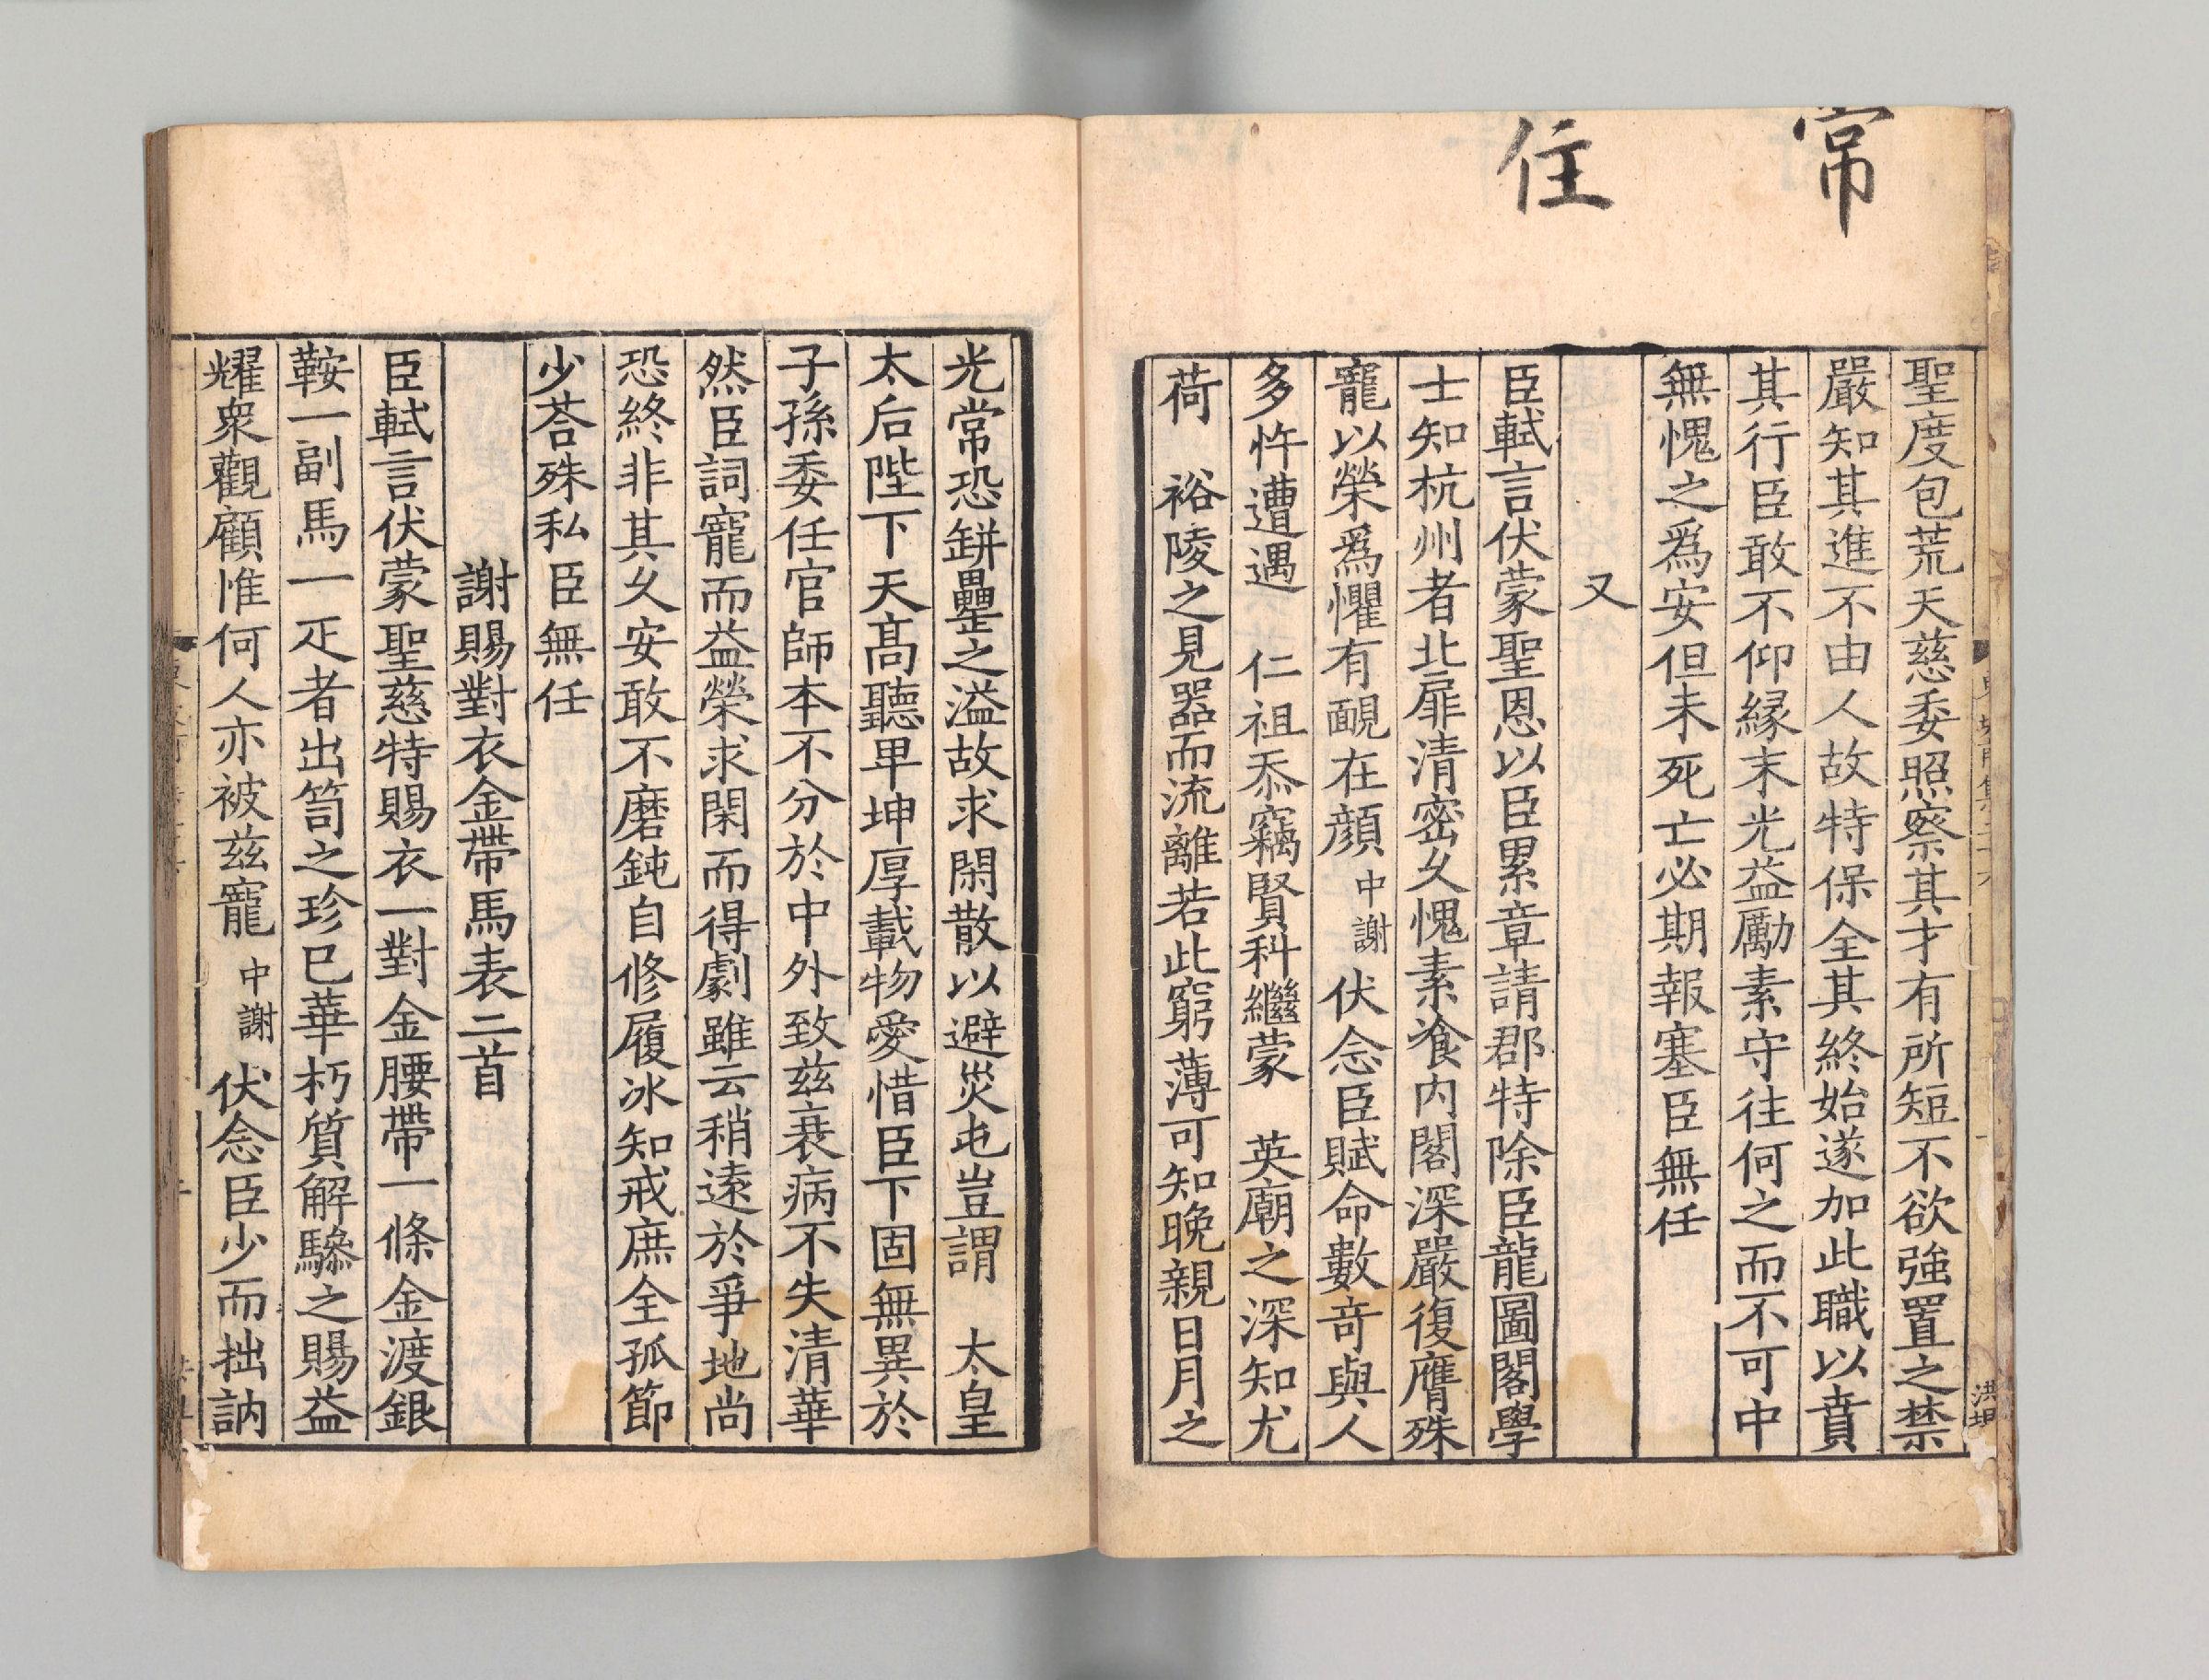 常住
聖度包荒天慈委照察其才有所短不欲強置之禁
嚴知其進不由人故特保全其終始遂加此職以賁
其行臣敢不仰縁末光益勵素守往何之而不可中
無愧之爲安但未死亡必期報塞臣無任
又
臣軾言伏蒙聖恩以臣累章請郡特除臣龍圖閣學
士知杭州者北扉清密久愧素飡内閣深嚴復膺殊
寵以榮爲懼有靦在顔 中謝 伏念臣賦命數竒與人
多忤遭遇 仁祖忝竊賢科繼蒙 英廟之深知尤
荷 裕陵之見器而流離若此窮薄可知晩親日月之
光常恐缾罍之溢故求閑散以避災屯豈謂 太皇
太后陛下天髙聽卑坤厚載物愛惜臣下固無異於
子孫委任官師本不分於中外致兹衰病不失清華
然臣詞寵而益榮求閑而得劇雖云稍遠於爭地尚
恐終非其久安敢不磨鈍自修履冰知戒庶全孤節
少荅殊私臣無任
謝賜對衣金帶馬表二首
臣軾言伏蒙聖慈特賜衣一對金腰帶一條金渡銀
鞍一副馬一疋者出笥之珍已華朽質解驂之賜益
燿衆觀顧惟何人亦被兹寵 中謝 伏念臣少而拙訥
洪坦